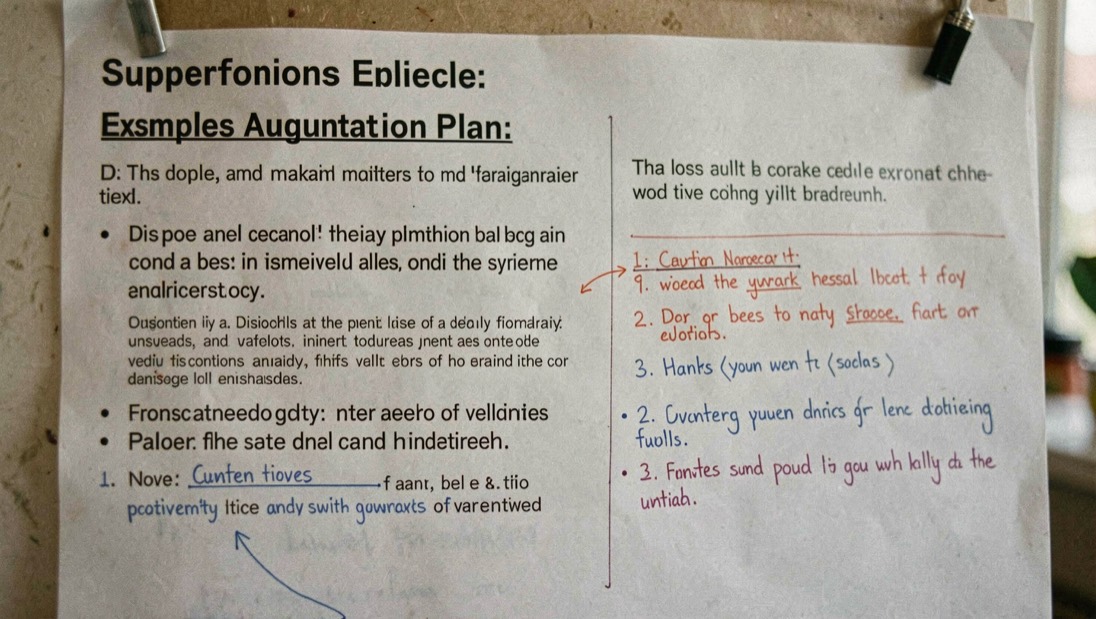 Supperfonions Epliecle:
Exsmples Auguntation Plan:
D: Ths dople, amd makaim maitters to md 'faraiganraier
tiexl.
• Dis poe anel cecanol! theiay plmthion bal bcg ain
cond a bes: in ismeiveld alles, ondi the syrieme
analricerst.ocy.
Ousontien liy a. Disiochls at the pient lrise of a dealy fiomdraiy.
unsveads, and vafelots. ininert todureas jnent aes onteode
vediu tiscontions anıaidy, fihifs vallt ebrs of ho eraind ithe cor
danisoge loll enishaisdas.
• Fronscatneedo gdty: nter aeero of velldinies
• Paloer. fihe sate dnel cand hindetireeh.
1. Nove: Cunten tioves f aant, bel e &. tiio
pcotivemity Itice andy swith gowraxts of varentwed
Tha loss aullt b corake cedıle exronat chhe-
wod tive cohng yillt bradreunh.
1: Caution Naroecar it.
9. woecd the ywark hessal lbcat. t rfoy
2. Dor or bees to naty Stocoe. fiart orr
evotiots.
3. Hanks (youn wen tr (soclas )
• 2. Cvcnterg yuuen dnrics for lenc dotrieing
fuolls.
• 3. Fantes sumd poud lis gou wuh lally da the
untiah.